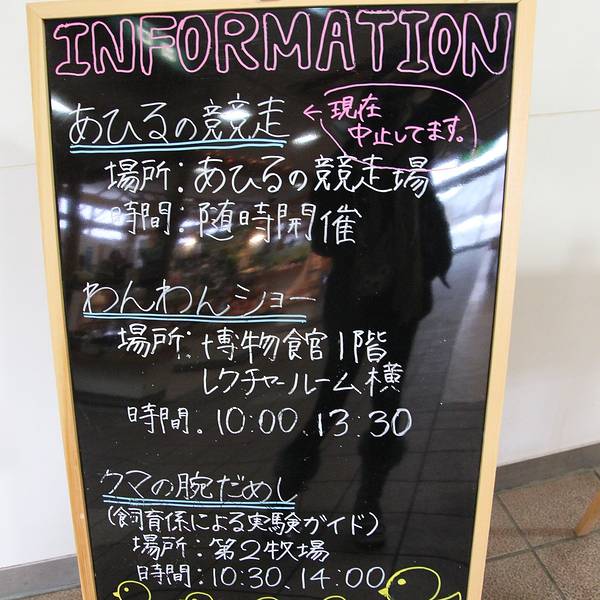 INFORMATION
あひるの競走
←現在
中止してます。
場所：あひるの競走場
時間：随時開催
わんわんショー
場所：博物館1階
レクチャールーム横
時間．10:00、13:30
クマの腕だめし
(飼育係による実験ガイド)
場所：第2牧場
時間：10:30、14:00